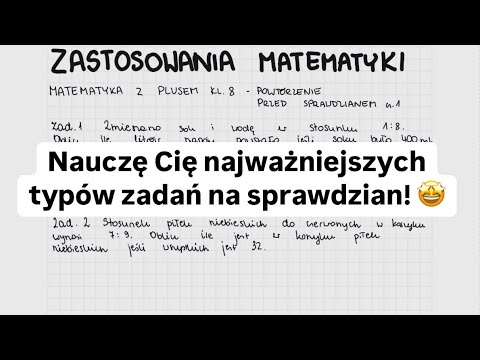 ZASTOSOWANIA MATEMATYKI
MATEMATYKA Z PLUSEM KL. 8 - POWTÓRZENIE
PRZED SPRAWDZIANEM
Zad. 1 Zmieszano sok i wodę w stosunku 1:8.
Oblicz ile litrów napoju powstało jeśli soku było 400 ml.
Nauczę Cię najważniejszych
typów zadań na sprawdzian! 🤩
Zad. 2 Stosunek piłek niebieskich do czerwonych w koszyku
wynosi 7:9. Oblicz ile jest w koszyku piłek
niebieskich jeśli wszystkich jest 32.